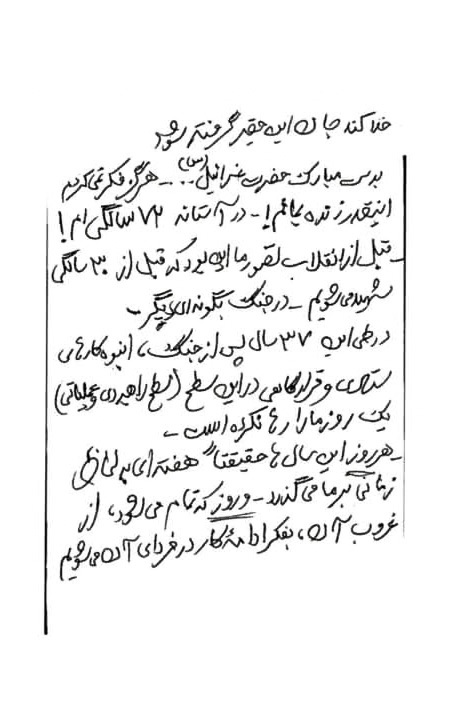 خدا کند جان این حقیر گرفته شود
بدست مبارک حضرت عزرائیل (س) .. - هرگز فکر نمی‌کردیم
اینقدر زنده بمانم! - در آستانه ۷۲ سالگی ام!
- قبل از انقلاب تصور ما این بود که قبل از ۳۰ سالگی
شهید می‌شویم - در جنگ بگونه‌ای دیگر -
در طی این ۳۷ سال پس از جنگ، انبوه کارهای
ستادی و قرارگاهی در این سطح (سطح راهبردی و عملیاتی)
یک روز ما را رها نکرده است -
- هر روز این سال ها حقیقتاً هفته‌ای به لحاظ
زمانی بر ما می‌گذرد - و روز که تمام می‌شود، از
غروب آن، بفکر ادامهٔ کار در فردای آن می‌شویم